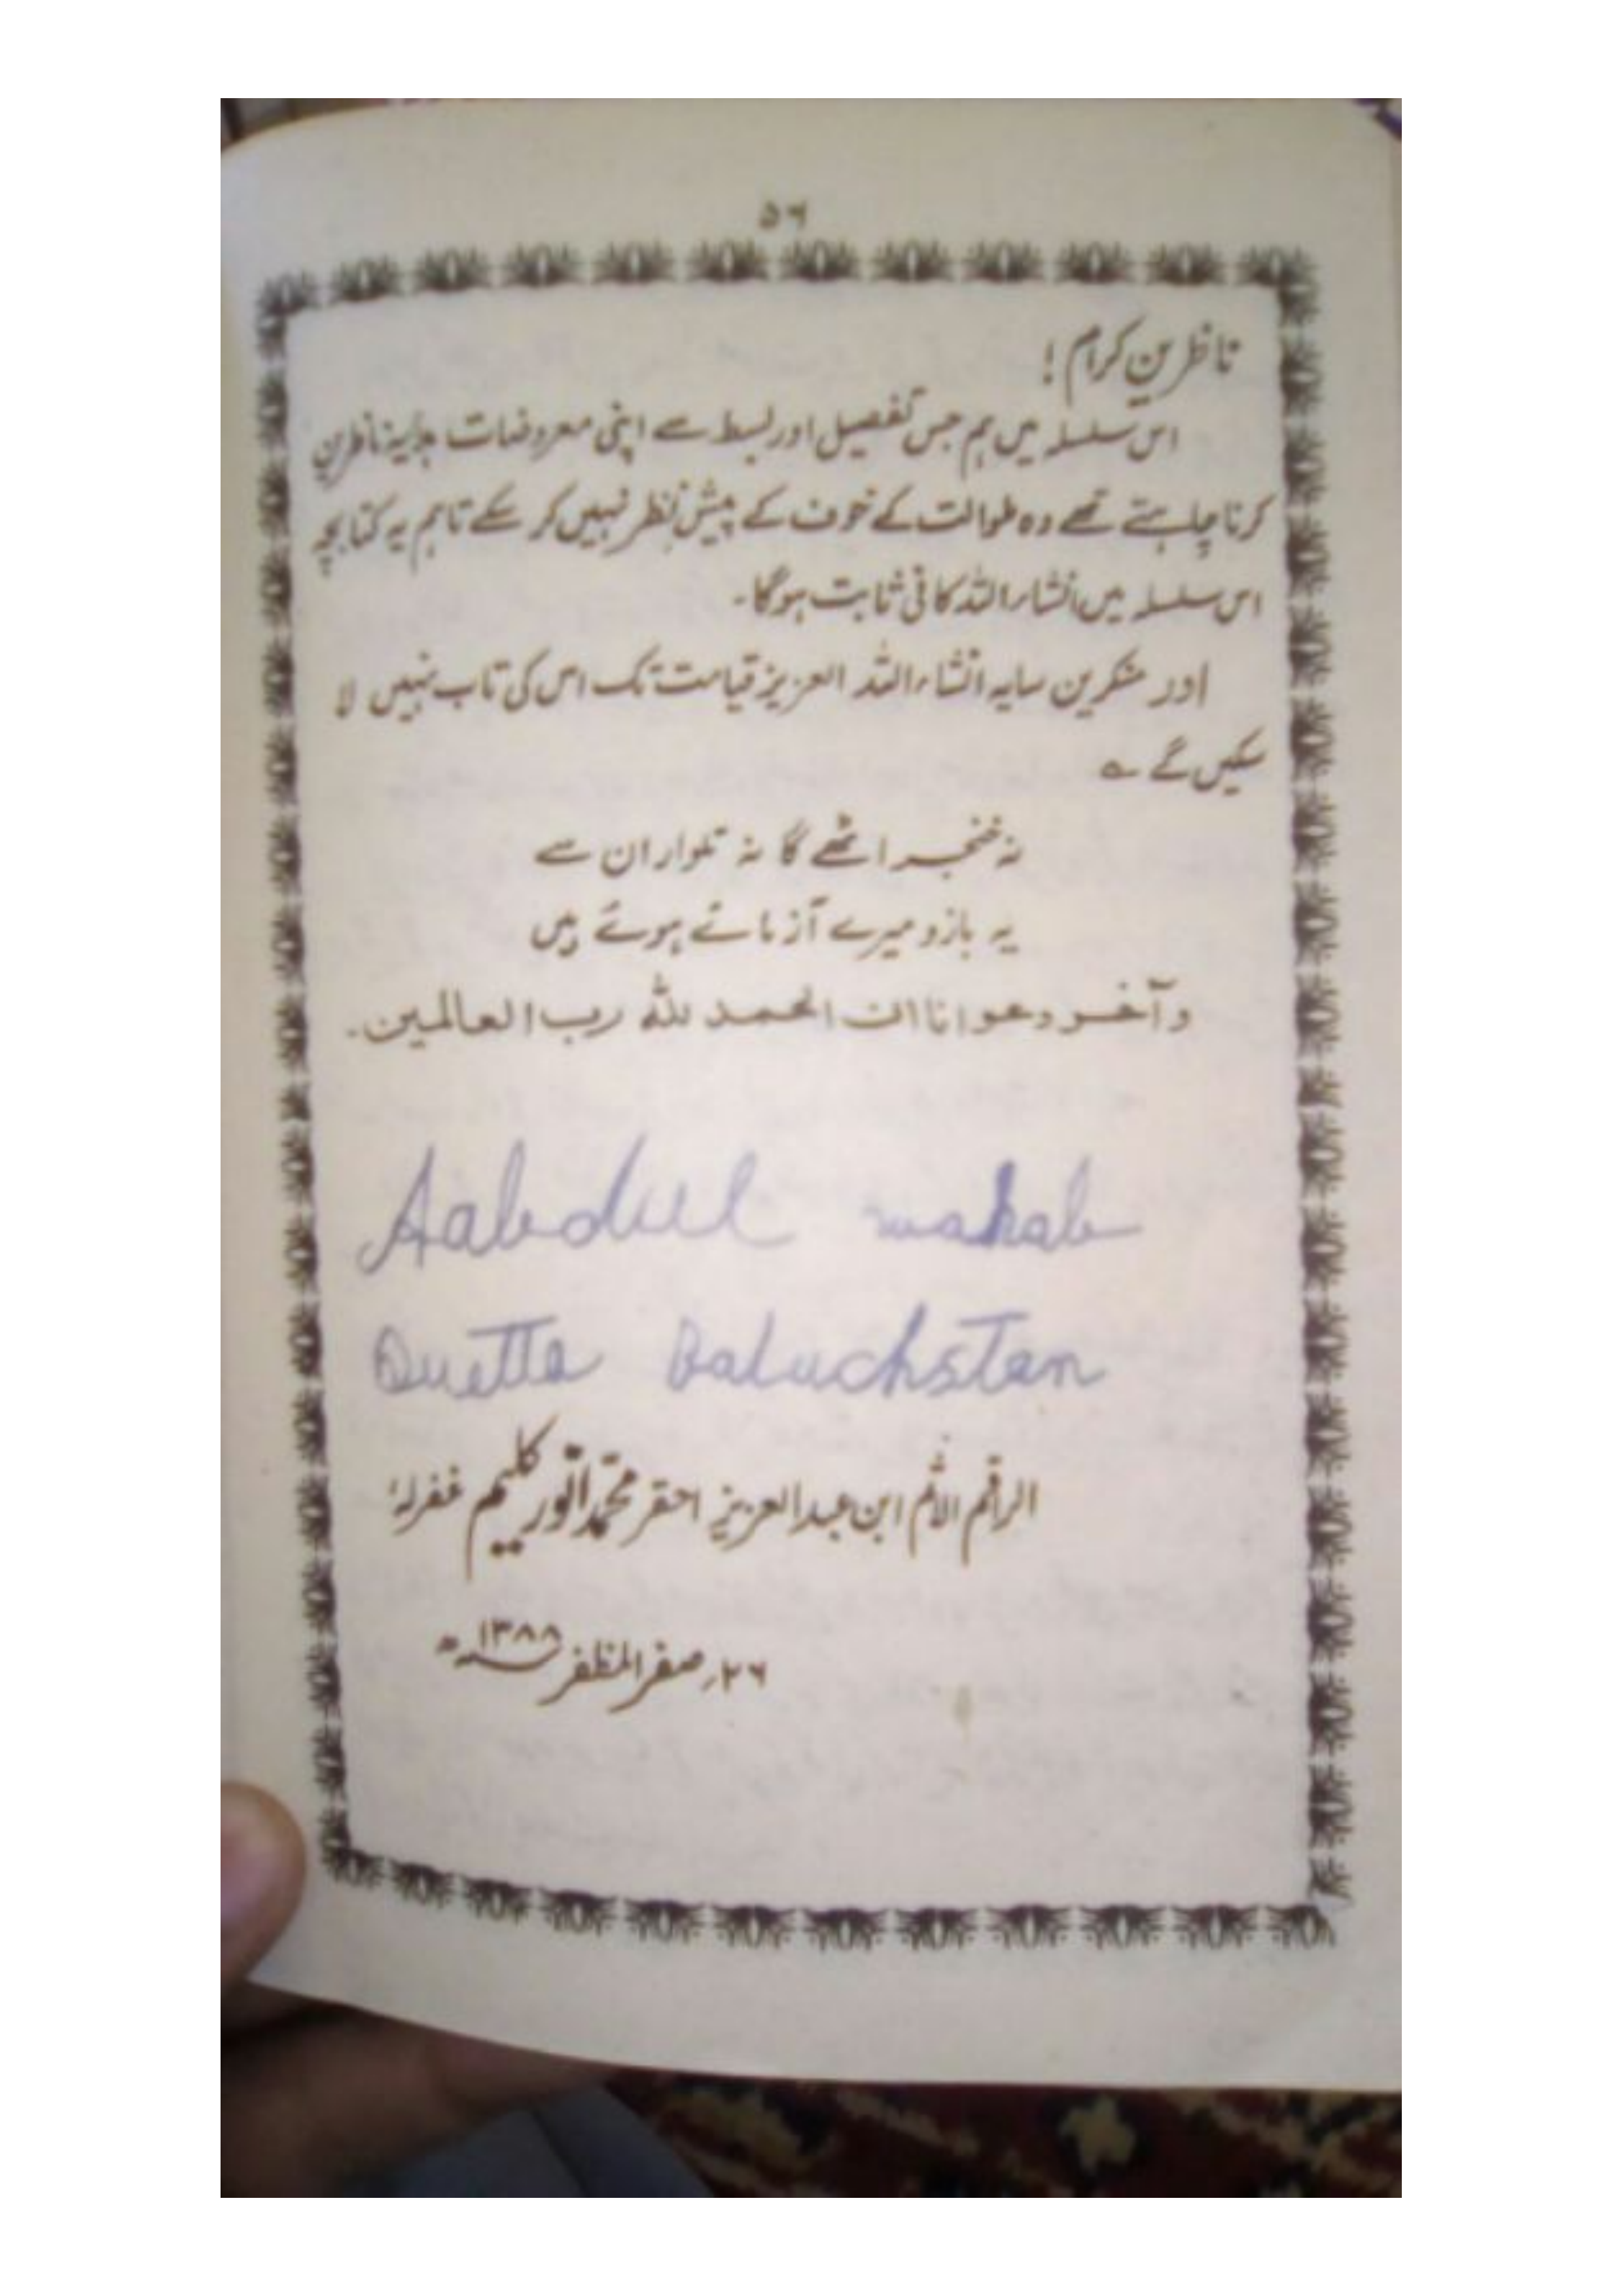 ۵۶
ناظرینِ کرام !
اس سلسلہ میں ہم جس تفصیل اور بسط سے اپنی معروضات ہدایہ ناظرین
کرنا چاہتے تھے وہ طوالت کے خوف کے پیشِ نظر نہیں کر سکے تاہم یہ کتابچہ
اس سلسلہ میں انشاء اللہ کافی ثابت ہوگا۔
اور منکرین سایہ انشاء اللہ العزیز قیامت تک اس کی تاب نہیں لا
سکیں گے ؎
نہ خنجر اٹھے گا نہ تلوار ان سے
یہ بازو میرے آزمائے ہوئے ہیں
وآخر دعوانا ان الحمد للہ رب العالمین۔
Aabdul wahab
Quetta Baluchstan
الراقم الآثم ابن عبدالعزیز احقر محمد انور کلیم غفرلہٗ
۲۶؍ صفر المظفر ۱۳۸۸ھ